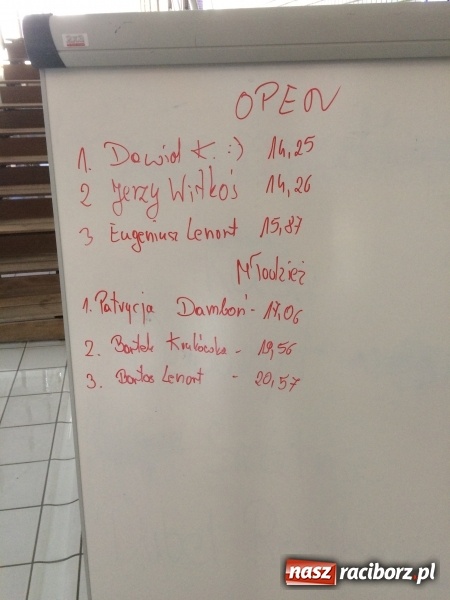 OPEN
1. Dawid K. :) 14,25
2 Jerzy Witkoś 14,26
3 Eugeniusz Lenort 15,87
Młodzież
1. Patrycja Damboń - 17,06
2. Bartek - 19,56
3. Bartos Lenort - 20,57
nasz raciborz.pl